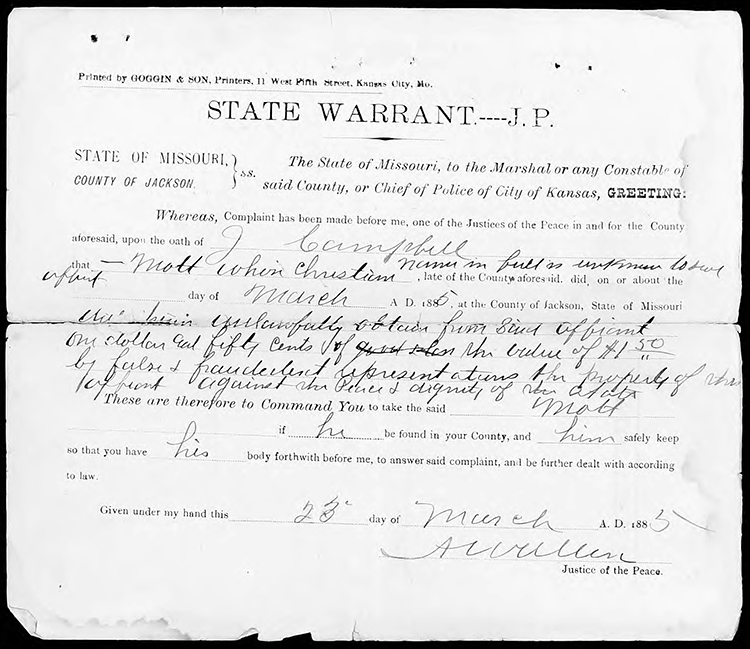 Printed by GOGGIN & SON, Printers, 11 West Fifth Street, Kansas City, Mo.
STATE WARRANT.----J.P.
STATE OF MISSOURI,
COUNTY OF JACKSON.
} ss.
The State of Missouri, to the Marshal or any Constable of
said County, or Chief of Police of City of Kansas, GREETING:
Whereas, Complaint has been made before me, one of the Justices of the Peace in and for the County
aforesaid, upon the oath of J Campbell
that — Mott whose Christian name in full is unknown to said
affiant, late of the County aforesaid, did, on or about the
day of March A D. 1885, at the County of Jackson, State of Missouri
unlawfully obtain from said affiant
one dollar and fifty cents of the value of $1 50
by false & fraudulent representations the property of this
affiant against the Peace & dignity of the State
These are therefore to Command You to take the said Mott
if he be found in your County, and him safely keep
so that you have his body forthwith before me, to answer said complaint, and be further dealt with according
to law.
Given under my hand this 23 day of March A. D. 1885
Justice of the Peace.